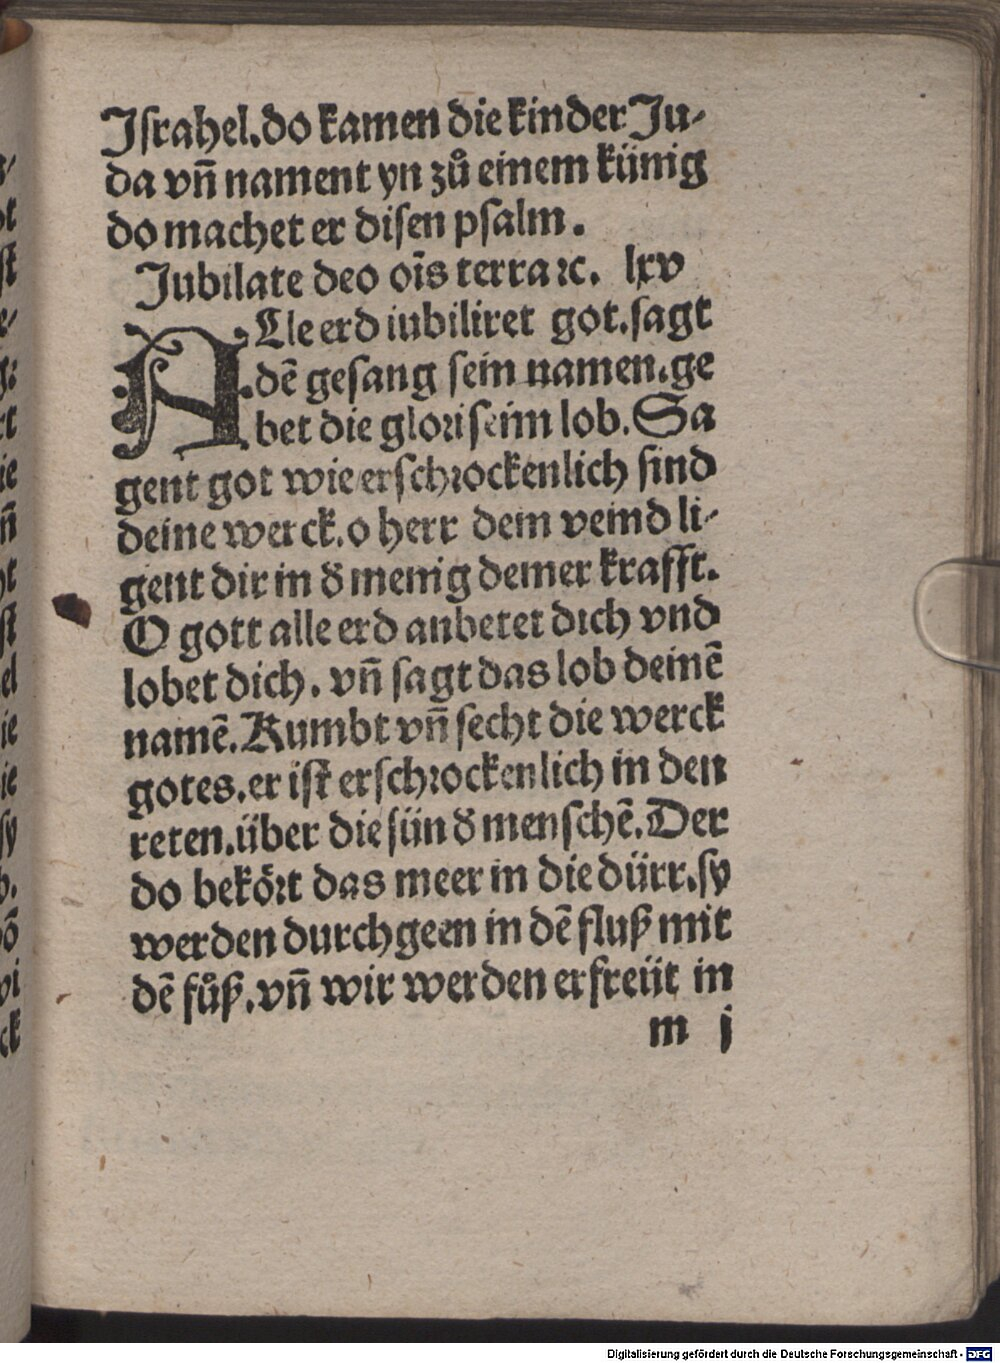 Israhel.do kamen die kinder Ju-
da vñ nament yn zů einem künig
do machet er disen psalm.
Jubilate deo oı̃s terra ⁊c. lxv
ALle erd iubiliret got.sagt
dẽ gesang sein namen.ge
bet die glori seim lob.Sa
gent got wie erschrockenlich sind
deine werck.o herr dein veind li-
gent dir in d̕ menig deiner krafft.
O gott alle erd anbetet dich vnd
lobet dich. vñ sagt das lob deinẽ
namẽ.Kumbt vñ secht die werck
gotes.er ist erschrockenlich in den
reten.über die sün d̕ menschẽ.Der
do bekört das meer in die dürr.sy
werden durchgeen in dẽ fluß mit
dẽ fůß.vñ wir werden erfreüt in
m j
Digitalisierung gefördert durch die Deutsche Forschungsgemeinschaft - DFG